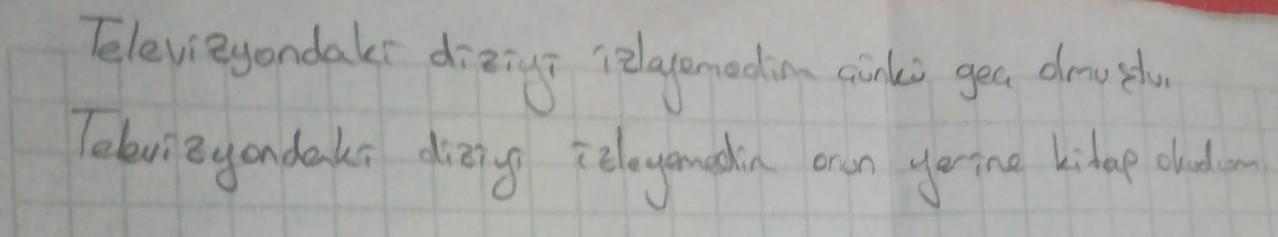 Televizyondaki diziyi izleyemedim çünkü geç olmuştu.
Televizyondaki diziyi izleyemedim onun yerine kitap okudum